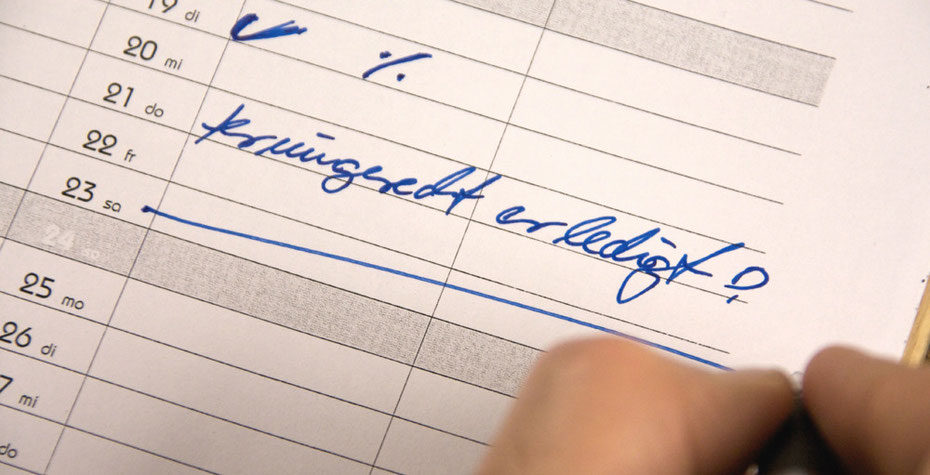 19 di ✓ ٪
20 mi
21 do
termingerecht erledigt?
22 fr
23 sa
24 so
25 mo
26 di
7 mi
do